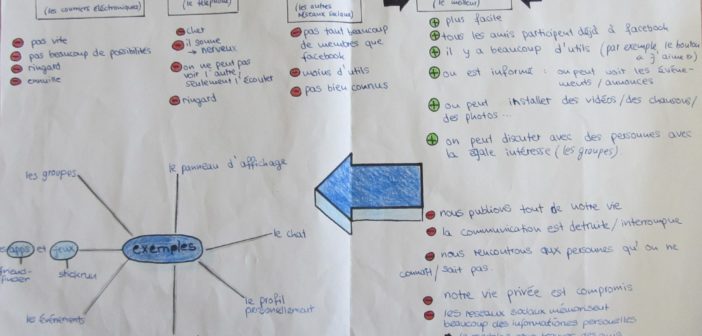 (les courriers électroniques)
pas vite
pas beaucoup de possibilités
ringard
ennuille
(le téléphone)
cher
il sonne
→ nerveux
on ne peut pas
voir l'autre;
seulement l'écouter
ringard
(les autres
réseaux sociaux)
pas tant beaucoup
de membres que
facebook
moins d'utils
pas bien connus
(le meilleur)
plus facile
tous les amis participent déjà à facebook
il y a beaucoup d'utils (par exemple, le bouton
« j'aime »)
on est informé: on peut voir les événe-
ments/annonces
on peut installer des vidéos/des chansons/
des photos...
on peut discuter avec des personnes avec
la égale intéresse (les groupes).
le panneau d'affichage
les groupes
le chat
exemples
apps et jeux
stickrun
le profil
personellement
les événements
nous publions tout de notre vie
la communication est detruite/interrompue
nous rencontrons aux personnes qu'on ne
connaît/sait pas.
notre vie privée est compromis
les reseaux sociaux mémorisent
beaucoup des informationes personelles